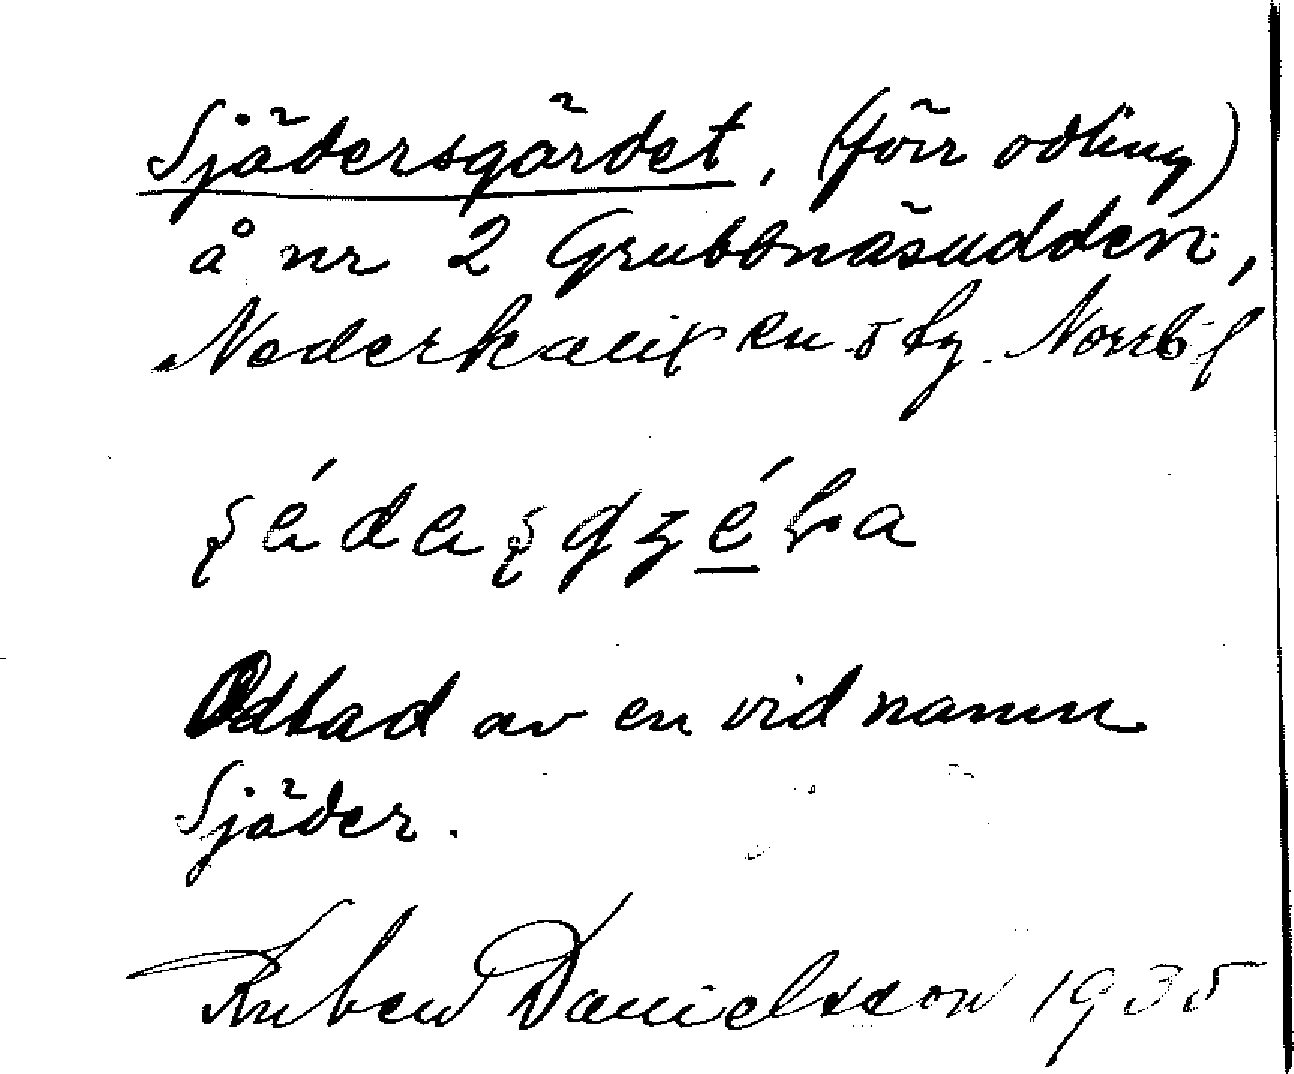 Sjädersgärdet, (förr odling)
å nr 2 Grubbnäsudden,
Nederkalix sn o hg. Norrb. l
Odlad av en vid namn
Sjäder.
Ruben Danielsson 1935